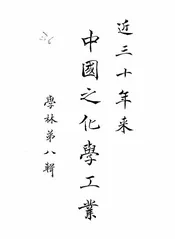 近三十年來
中國之化學工業
學林第八輯